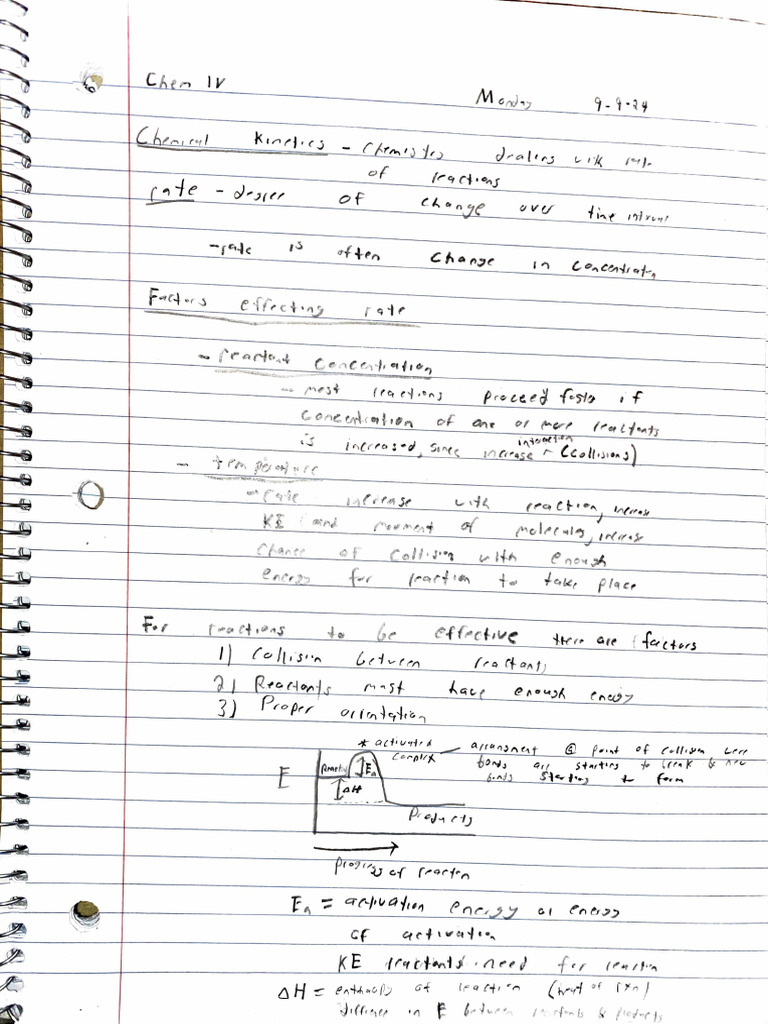 Chem IV
Monday 9-9-24
Chemical Kinetics - Chemistry dealing with rate
of reactions
rate - degree of change over time interval
-rate is often change in concentratn
Factors effecting rate
- reactant concentration
- most reactions proceed faster if
concentration of one or more reactants
is increased, since increase interaction (collisions)
- temperature
- rate increase with reaction, increase
KE and movment of molecules, increase
chance of collision with enough
energy for reaction to take place
For reactions to be effective there are factors
1) Collision between reactants
2) Reactants must have enough energy
3) Proper orientation
* activated complex - arrangment @ point of collision were
bonds are starting to break & new
bonds starting to form
E
Ea
ΔH
Products
Progress of reaction
Ea = activation energy or energy
of activation
KE reactants need for reaction
ΔH = enthalpy of reaction (heat of rxn)
difference in E between reactants & products